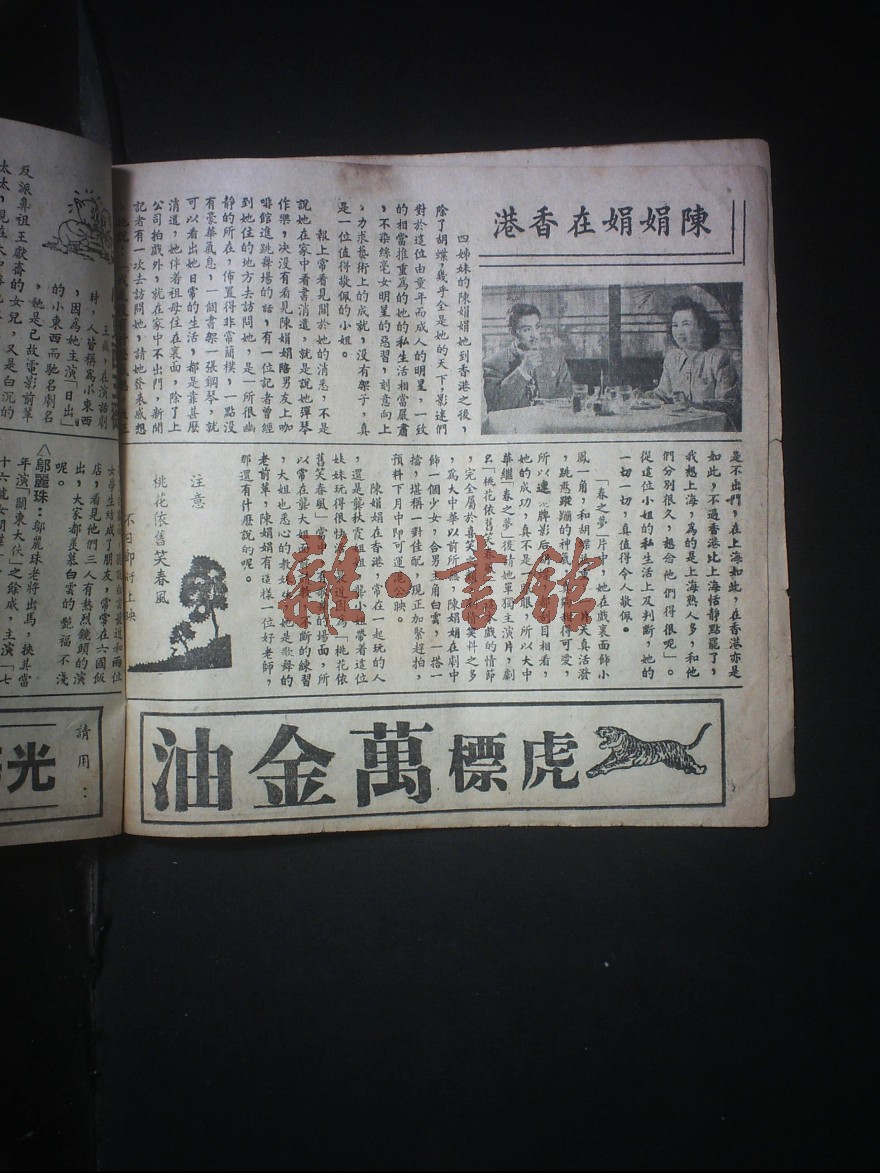 陳娟娟在香港
四姊妹的陳娟娟她到香港之後，
除了胡蝶，幾乎全是她的天下，影迷們
對於這位由童年而成人的明星，一致
的相當推重，為的她的私生活相當嚴肅
，不染絲毫女明星的惡習，刻意向上
，力求藝術上的成就，沒有架子，真
是一位值得敬佩的小姐。
報上常看見關於她的消悉，不是
說她在家中看書消遣，就是說她彈琴
作樂，決沒有看見陳娟娟陪男友上咖
啡館進跳舞場的話，有一位記者曾經
到她住的地方去訪問她，是一所很幽
靜的所在，佈置得非常簡樸，一點沒
有豪華氣息，一個書架一張鋼琴，就
可以看出她日常的生活，都是靠甚麼
消遣，她伴着祖母住在裏面，除了上
公司拍戲外，就在家中不出門，新聞
記者有一次去訪問她，請她發表感想
是不出門，在上海如此，在香港亦是
如此，不過香港比上海恬靜點罷了，
我想上海，為的是上海熟人多，和他
們分別很久，想念他們得很呢」。
從這位小姐的私生活上及判斷，她的
一切一切，真值得令人敬佩。
「春之夢」片中，她在戲裏面飾小
鳳一角，和胡
天真活潑
，跳慈蹤蹦的神
得可愛，
所以連
牌影后
目相看，
她的成功，真不是
眼，所以大中
華繼「春之夢」後請她單獨主演片，劇
名「桃花依舊笑春
戲的情節
，完全屬於喜笑
情笑料之多
，為大中華以前所
陳娟娟在劇中
飾一個少女，合男主角白雲，一搭一
擋，堪稱一對佳配，現正加緊趕拍，
預料下月中即可運港公映。
陳娟娟在香港，常在一起玩的人
，還是龔秋霞姐姐，龔小
帶着這位
妹妹玩得很快
道因為「桃花依
舊笑春風」當中
的場面，所
以常在龔大姐面
不斷的練習
，大姐也悉心的教
她是歌舞的
老前輩，陳娟娟有這樣一位好老師，
那還有什麼說的呢。
注意
桃花依舊笑春風
不日即將上映
虎標萬金油
王薇，在演話劇
時，人皆稱為小東西
，因為她主演「日出」
的小東西而馳名劇名
，她是已故電影前輩
反派鼻祖王獻齋的女兒，又是白沉的
太太，現在
女學生結成了朋友，常常在六國飯
店，看見他們三人有熱烈鏡頭的演
出，大家都羨慕白雲的艷福不淺
呢。
鄔麗珠：鄔麗珠老將出馬，挾其當
年演「關東大俠」之餘威，主演「七
十六號女間諜
請用：
光
雜·書館